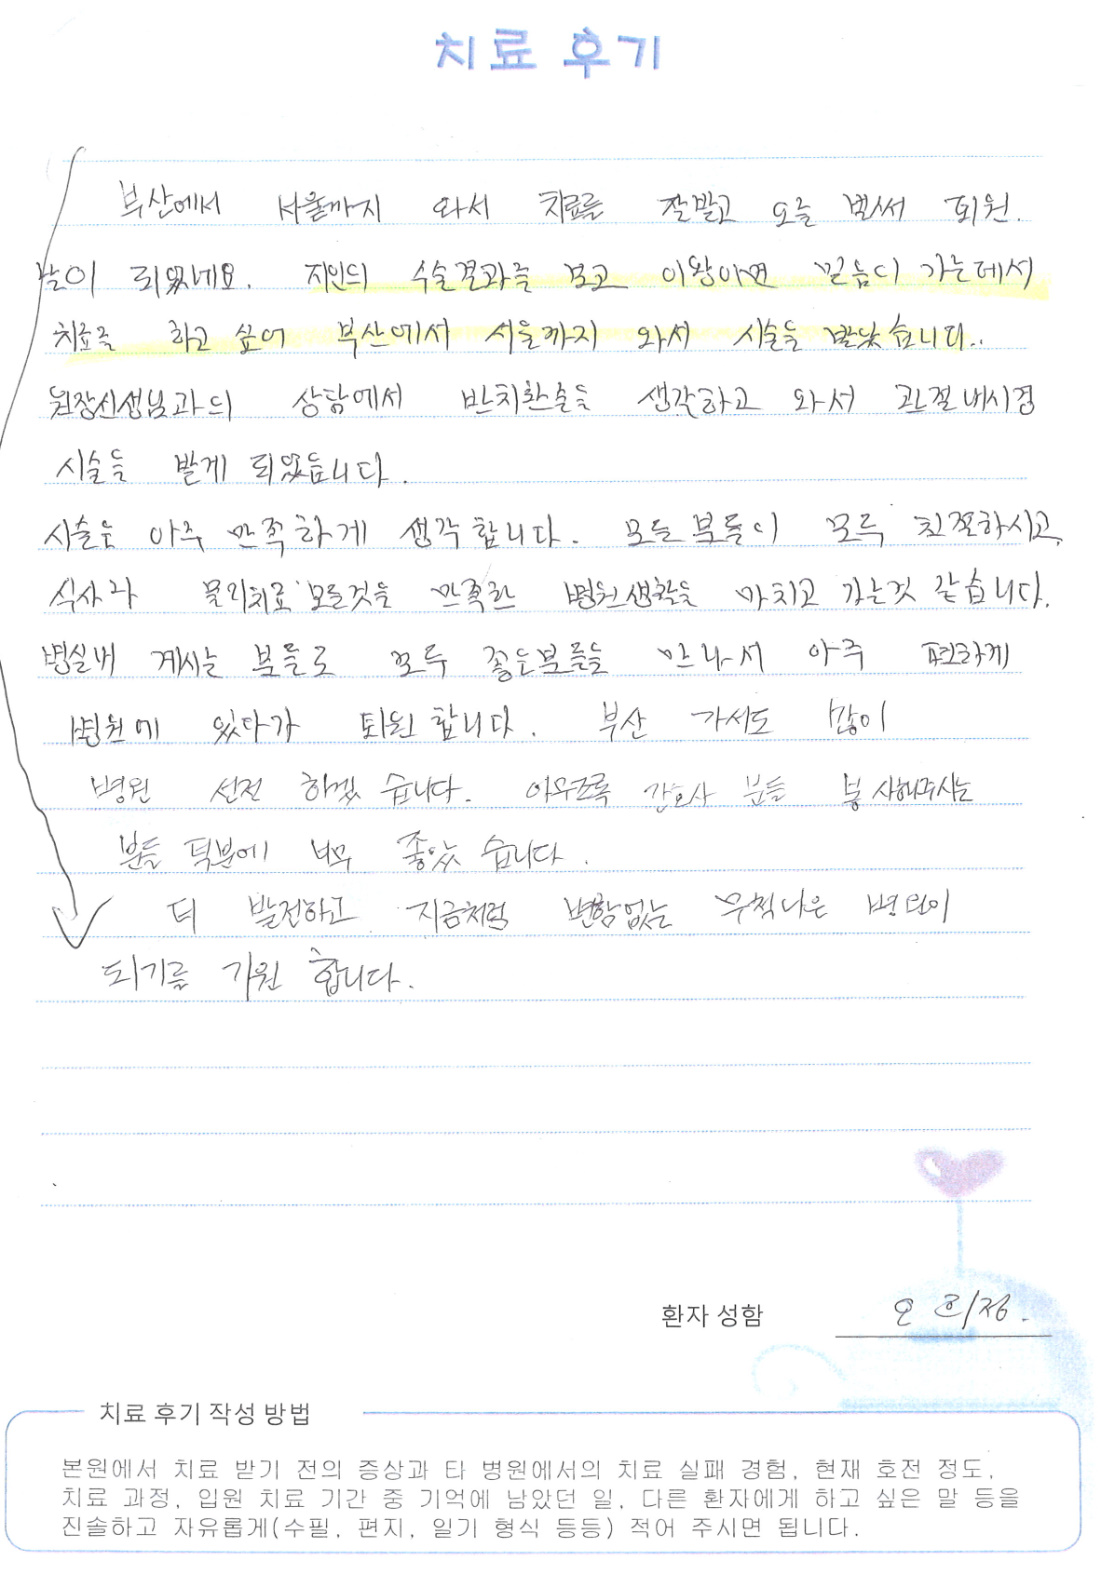 치료 후기
부산에서 서울까지 와서 치료를 잘받고 오늘 벌써 퇴원.
날이 되었네요. 지인의 수술결과를 보고 이왕이면 믿음이 가는데서
치료를 하고 싶어 부산에서 서울까지 와서 시술을 받았습니다..
원장선생님과의 상담에서 반치환술을 생각하고 와서 관절내시경
시술을 받게 되었습니다.
시술은 아주 만족하게 생각합니다. 모든분들이 모두 친절하시고,
식사와 물리치료 모든것을 만족한 병원생활을 마치고 가는것 같습니다.
병실내 계시는 분들도 모두 좋은분들을 만나서 아주 편하게
병원에 있다가 퇴원합니다. 부산 가서도 많이
병원 선전 하겠습니다. 아무쪼록 간호사 분들 봉사해주시는
분들 덕분에 너무 좋았습니다.
더 발전하고 지금처럼 변함없는 무척나은 병원이
되기를 기원 합니다.
환자 성함
치료 후기 작성 방법
본원에서 치료 받기 전의 증상과 타 병원에서의 치료 실패 경험, 현재 호전 정도,
치료 과정, 입원 치료 기간 중 기억에 남았던 일, 다른 환자에게 하고 싶은 말 등을
진솔하고 자유롭게(수필, 편지, 일기 형식 등등) 적어 주시면 됩니다.